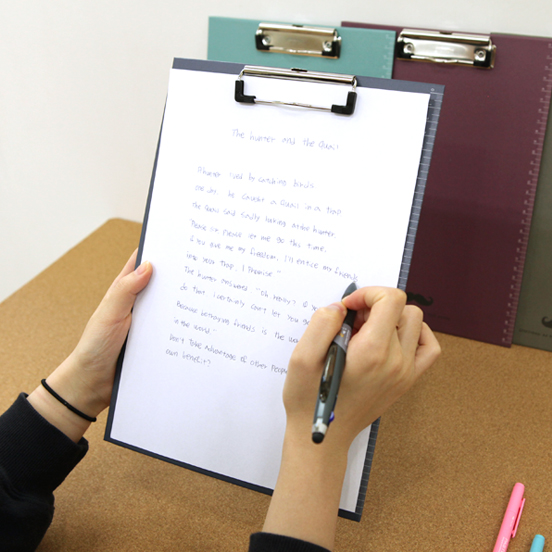 The hunter and the Quail
A hunter lived by catching birds
one day, he caught a Quail in a trap
the Quail said sadly looking at the hunter
"Please sir, Please let me go this time.
if you give me my freedom, I'll entice my friends
into your trap. I promise"
The hunter "Oh really? if you
do that, I certainly can't let you go
Because betraying friends is the
in the world"
Don't take advantage of other people
own benefit"